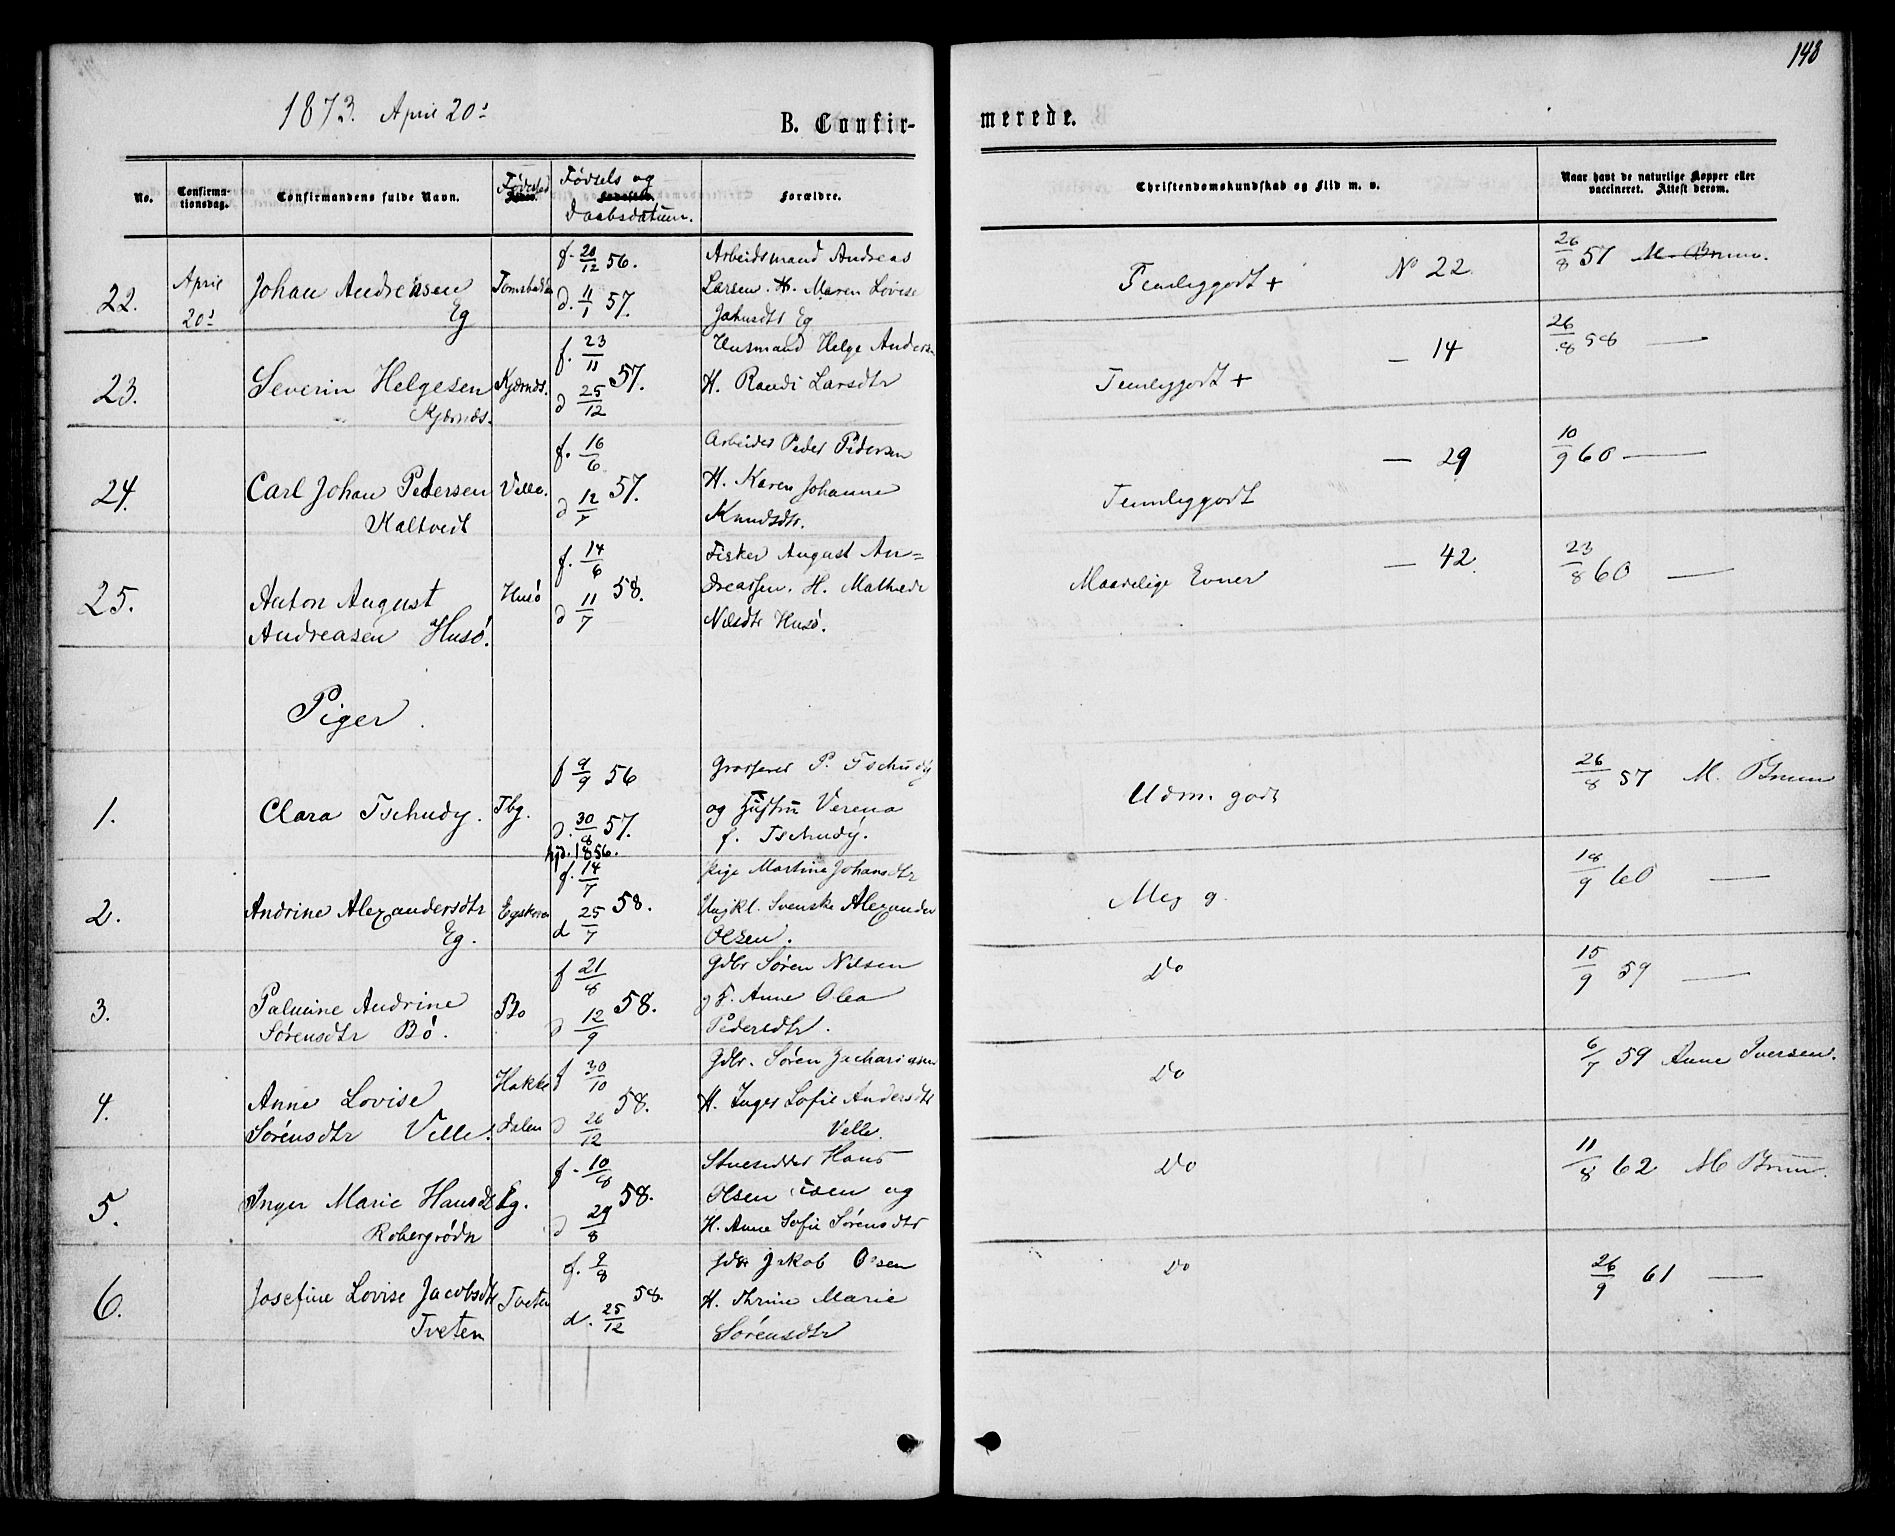 148
1873. April 20de
B. Confir- merede.
No. Confirma- tionsdag. Confirmandens fulde Navn. Fødested Fødsels og Daabsdatum. Forældre. Christendomskundskab og Flid m. v. Naar havt de naturlige Kopper eller vaccineret. Attest derom.
22. April 20de Johan Andreasen Eg
f. 20/12 56. d. 11/1 57.
Arbeidsmand Andreas
Larsen. H. Maren Lovise
Eg
Temeliggodt + No 22. 26/8 57 M. Brun.
23. Severin Helgesen Kjærnæs. Kjærnæs.
f. 23/11 d 25/12 57.
Husmand Helge Andersn
H. Randi Larsdtr
Temeliggodt + — 14 26/8 58 —
24. Carl Johan Pedersen Kaltvedt Velle.
f. 16/6 d 12/7 57.
Arbeider Peder Pedersen
H. Karen Johanne
Knudsdtr.
Temeliggodt — 29 10/9 60 —
25. Anton August
Andreasen Husø. Husø
f. 14/6 d 11/7 58.
Fisker August An=
dreassen. H. Mathilde
Nilsdtr Husø.
Maadelige Evner — 42. 23/8 60 —
Piger.
1. Clara Tschudy. Tbg.
f 9/9 56 d. 30/8 57.
hjd. 1856.
Grosserer P. Tschudy
og Hustru Verena
f. Tschudy.
Udm. godt 26/8 57 M. Brun
2. Andrine Alexandersdtr Eg. Egskoven
f. 14/7 d 25/7 58.
Pige Martine Johansdtr
Ungkl. Svenske Alexander
Olsen.
Meg g. 18/9 60 —
3. Palmine Andrine
Sørensdtr Bø. Bø
f 21/8 d 12/9 58.
Gdbr Søren Nilsen
Anne Olea
Pedersdtr.
Do 15/9 59 —
4. Anne Lovise
Sørensdtr Velle. Hakke
dalen
f 30/10 d 26/12 58.
Gdbr. Søren Zachariasen
H. Inger Sofie Andersdtr
Velle.
Do 6/7 59 Anne Iversen.
5. Inger Marie Hansdtr Robergrødn Eg.
f. 10/8 d 29/8 58.
Hans
Olsen og
H. Anne Sofie Sørensdtr
Do 11/8 62 M Brun.
6. Josefine Lovise Jacobsdtr Tveten Tveten
f. 9/8 d. 25/12 58.
Gdbr Jakob Olsen
H. Thrine Marie
Sørensdtr
Do 26/9 61 —